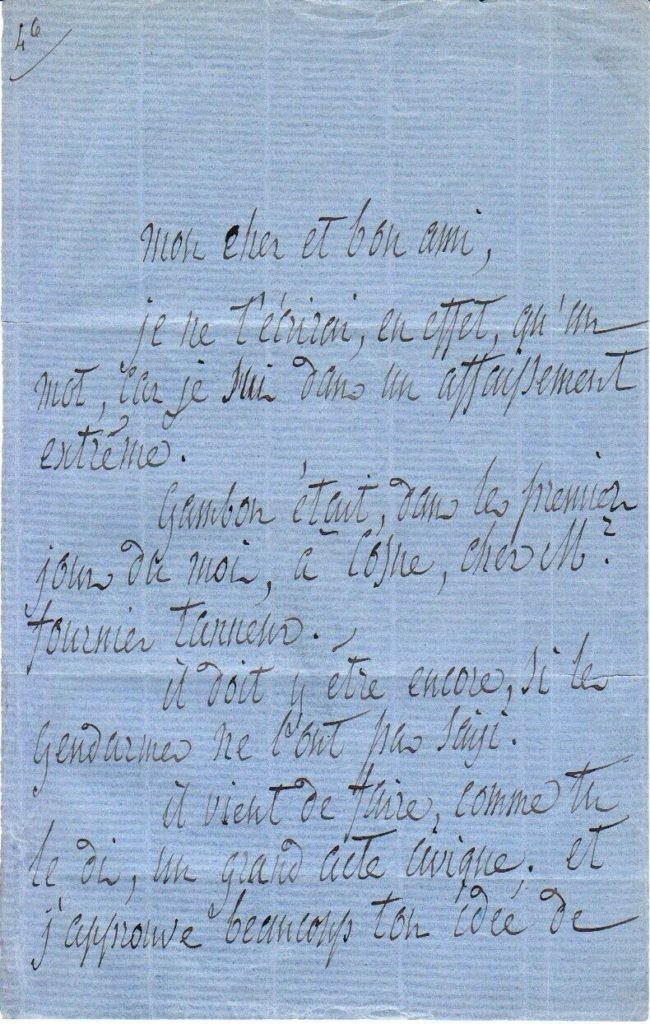 46
mon cher et bon ami,
je ne t'écrirai, en effet, qu'un
mot, car je suis dans un affaissement
extrême.
Gambon était, dans les premiers
jours du mois, à Cosne, chez Mr.
fournier tanneur.
il doit y être encore, si les
gendarmes ne l'ont pas saisi.
il vient de faire, comme tu
le dis, un grand acte civique; et
j'approuve beaucoup ton idée de